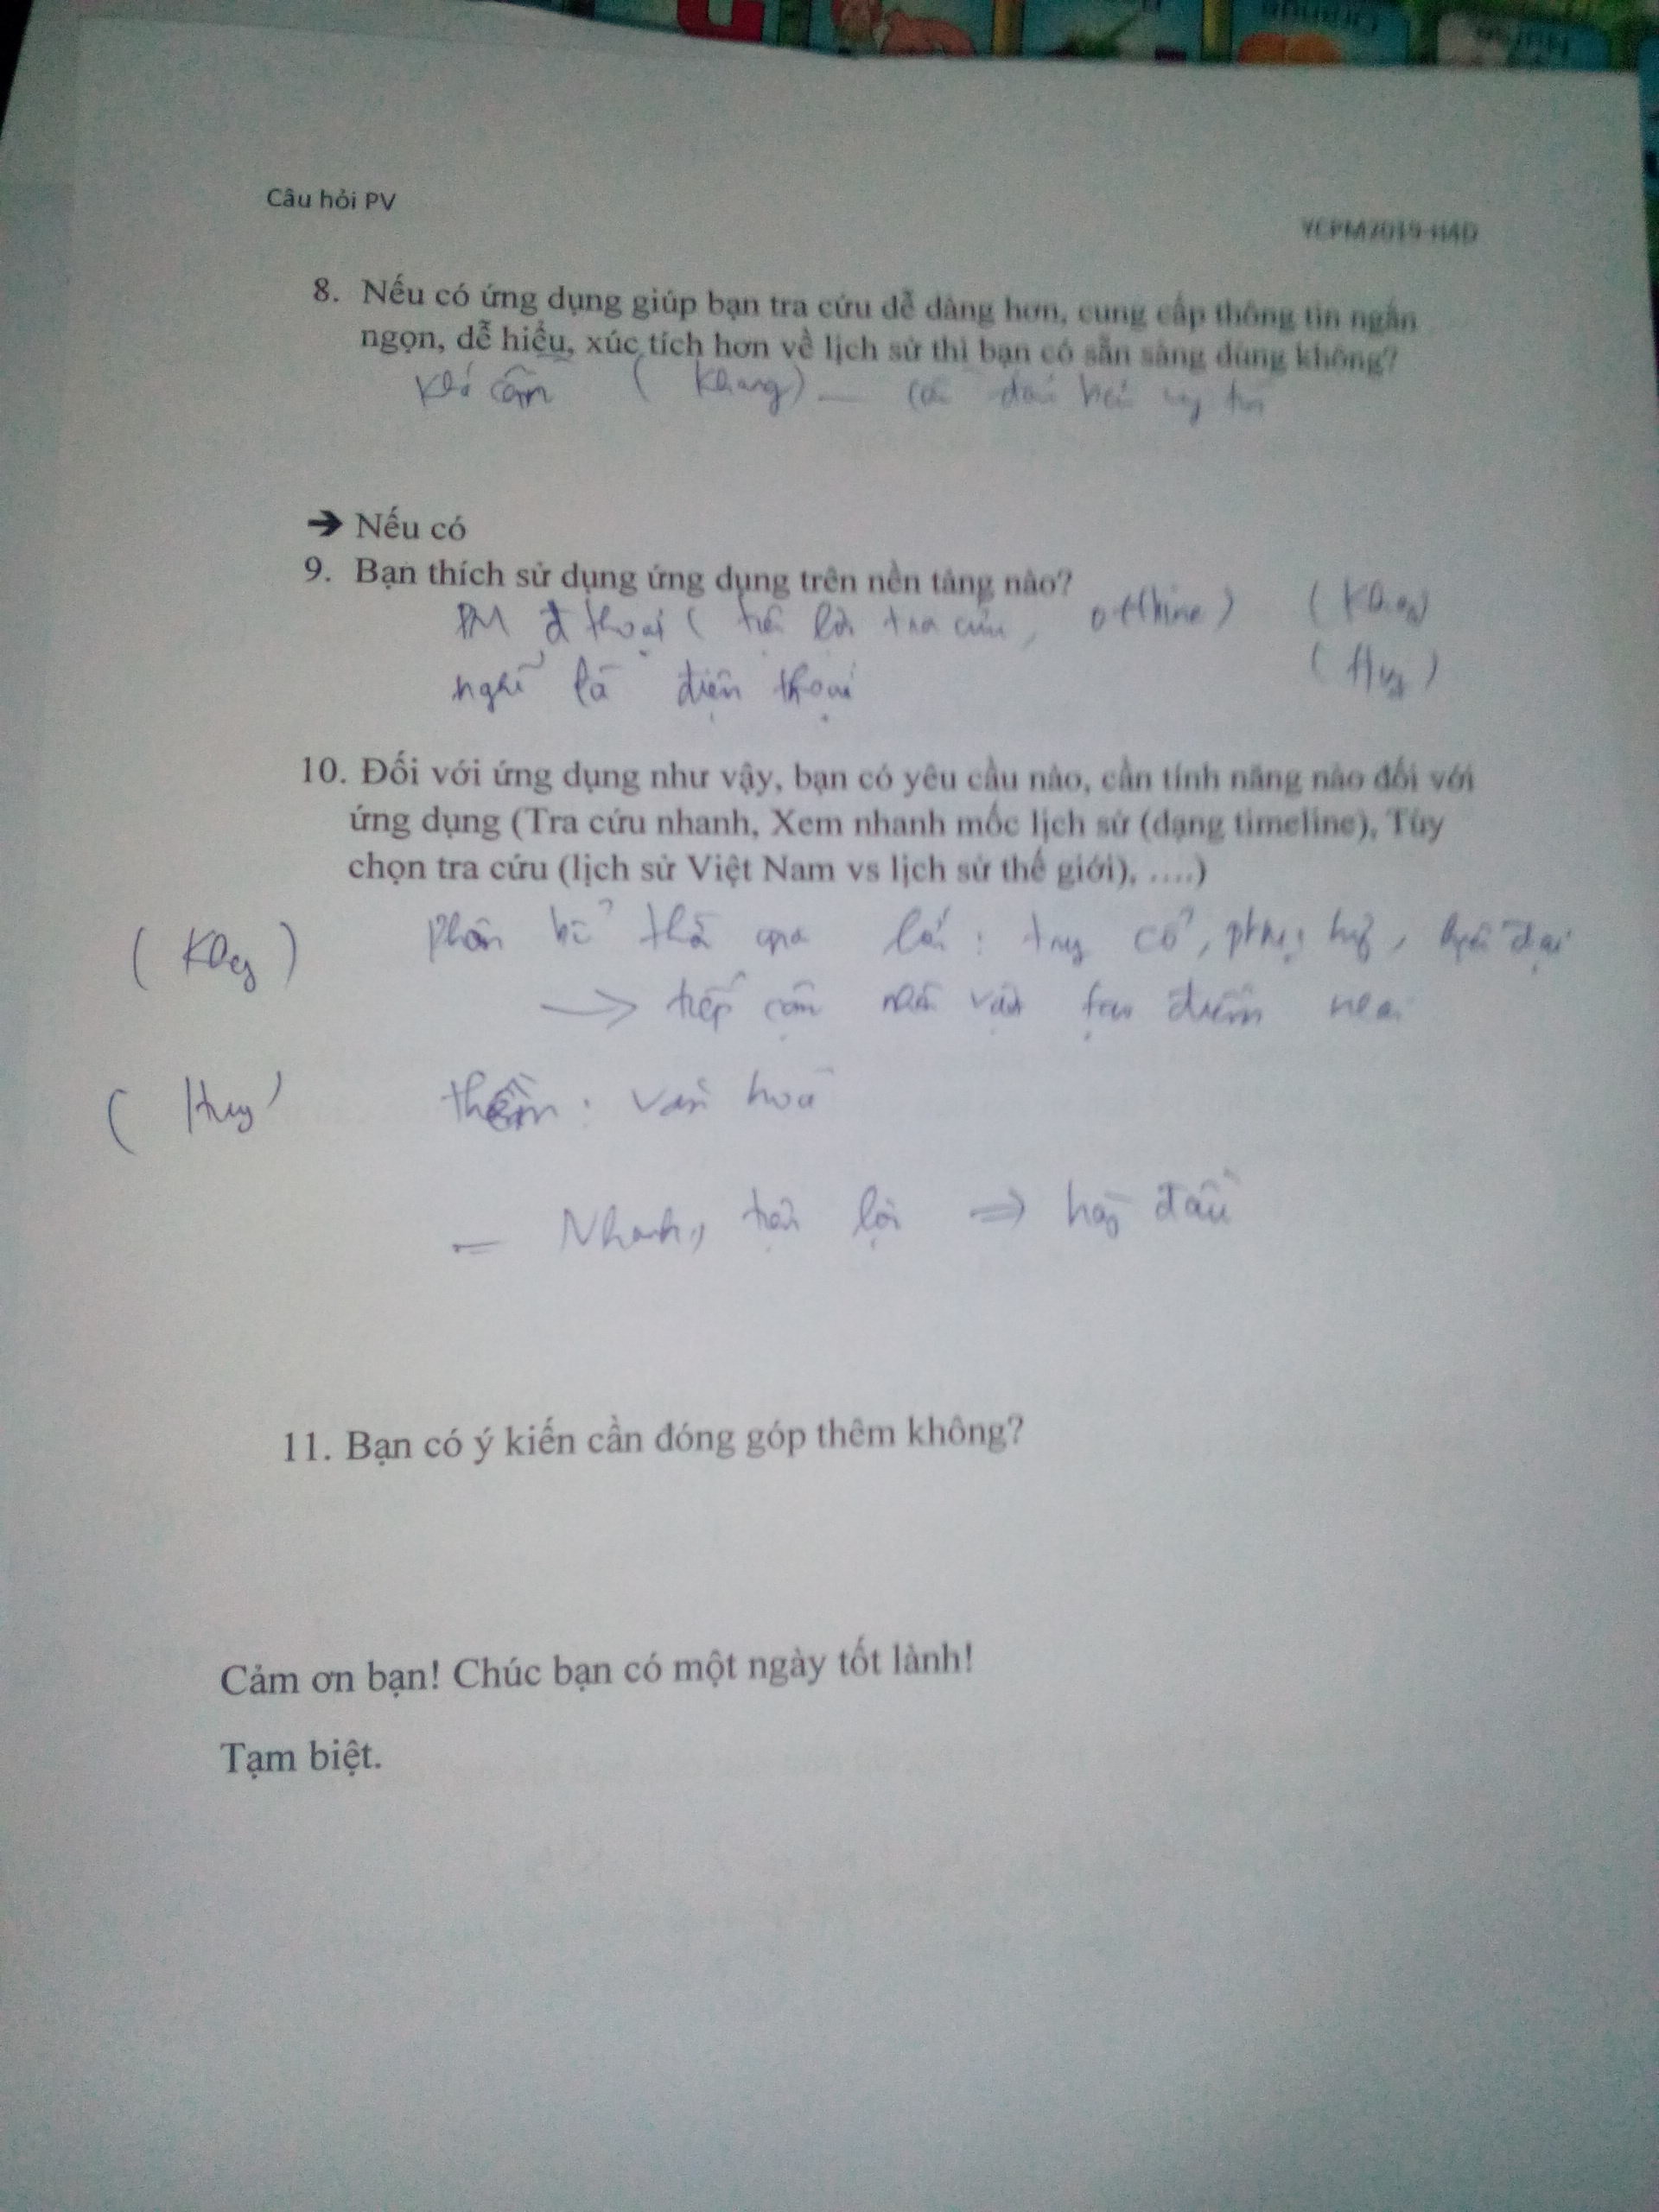 Câu hỏi PV
YCPM2019-H4D
8. Nếu có ứng dụng giúp bạn tra cứu dễ dàng hơn, cung cấp thông tin ngắn
ngọn, dễ hiểu, xúc tích hơn về lịch sử thì bạn có sẵn sàng dùng không?
Khá cần ( Khang) —
➔ Nếu có
9. Bạn thích sử dụng ứng dụng trên nền tảng nào?
PM đ thoại ( tiện lợi tra cứu, offline) (Khang)
nghĩ là điện thoại (Huy)
10. Đối với ứng dụng như vậy, bạn có yêu cầu nào, cần tính năng nào đối với
ứng dụng (Tra cứu nhanh, Xem nhanh mốc lịch sử (dạng timeline), Tùy
chọn tra cứu (lịch sử Việt Nam vs lịch sử thế giới), ….)
(Khang) Phân
→ tiếp cận nhân vật
(Huy) thêm: văn hoá
— Nhanh, tiện lợi ⇒ hàng đầu
11. Bạn có ý kiến cần đóng góp thêm không?
Cảm ơn bạn! Chúc bạn có một ngày tốt lành!
Tạm biệt.